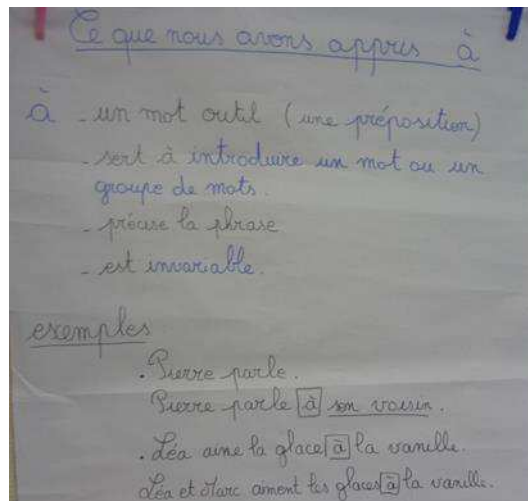 Ce que nous avons appris à
à - un mot outil (une préposition)
- sert à introduire un mot ou un
groupe de mots.
- précise la phrase
- est invariable.
exemples
. Pierre parle.
Pierre parle à son voisin.
. Léa aime la glace à la vanille.
Léa et Marc aiment les glaces à la vanille.